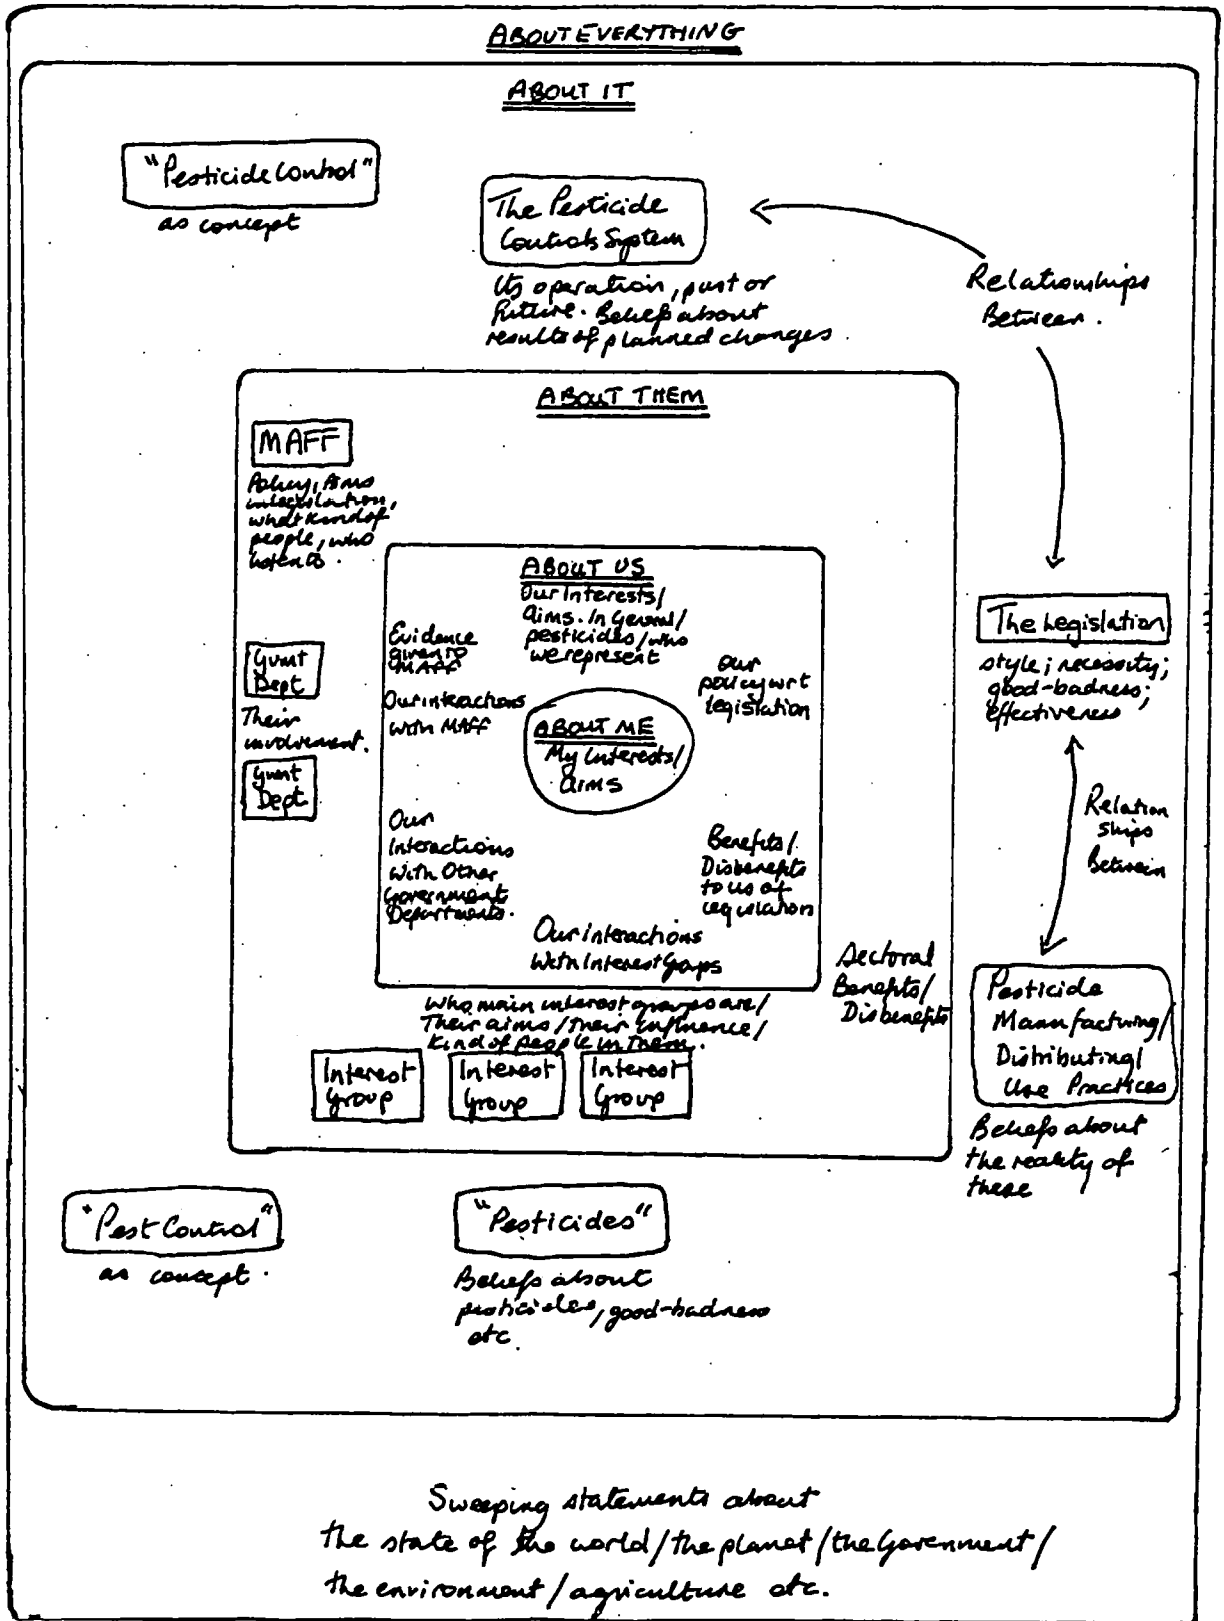 ABOUT EVERYTHING
ABOUT IT
"Pesticide Control"
as concept
The Pesticide
Controls System
Its operation, past or
future. Beliefs about
results of planned changes
Relationships
Between.
ABOUT THEM
MAFF
Policy, Aims
in legislation,
what kind of
people, who
listen to.
Gvmt
Dept
Their
involvement.
Gvmt
Dept
ABOUT US
Our Interests/
aims. In General/
pesticides/who
we represent
Evidence
given to
MAFF
Our interactions
with MAFF
Our
policy wrt
legistation
ABOUT ME
My Interests/
aims
Our
Interactions
with Other
Government
Departments.
Benefits/
Disbenefits
to us of
legislation
Our interactions
With Interest Gaps
Who main interest groups are/
Their aims/their influence/
Kind of people in them.
Interest
Group
Interest
Group
Interest
Group
Sectoral
Benefits/
Disbenefits
The Legislation
style; necessity;
good-badness;
effectiveness
Relation
ships
Between
Pesticide
Manufacturing/
Distributing/
Use Practices
Beliefs about
the reality of
these
"Pest Control"
as concept.
"Pesticides"
Beliefs about
pesticides, good-badness
etc.
Sweeping statements about
the state of the world/the planet/the Government/
the environment/agriculture etc.